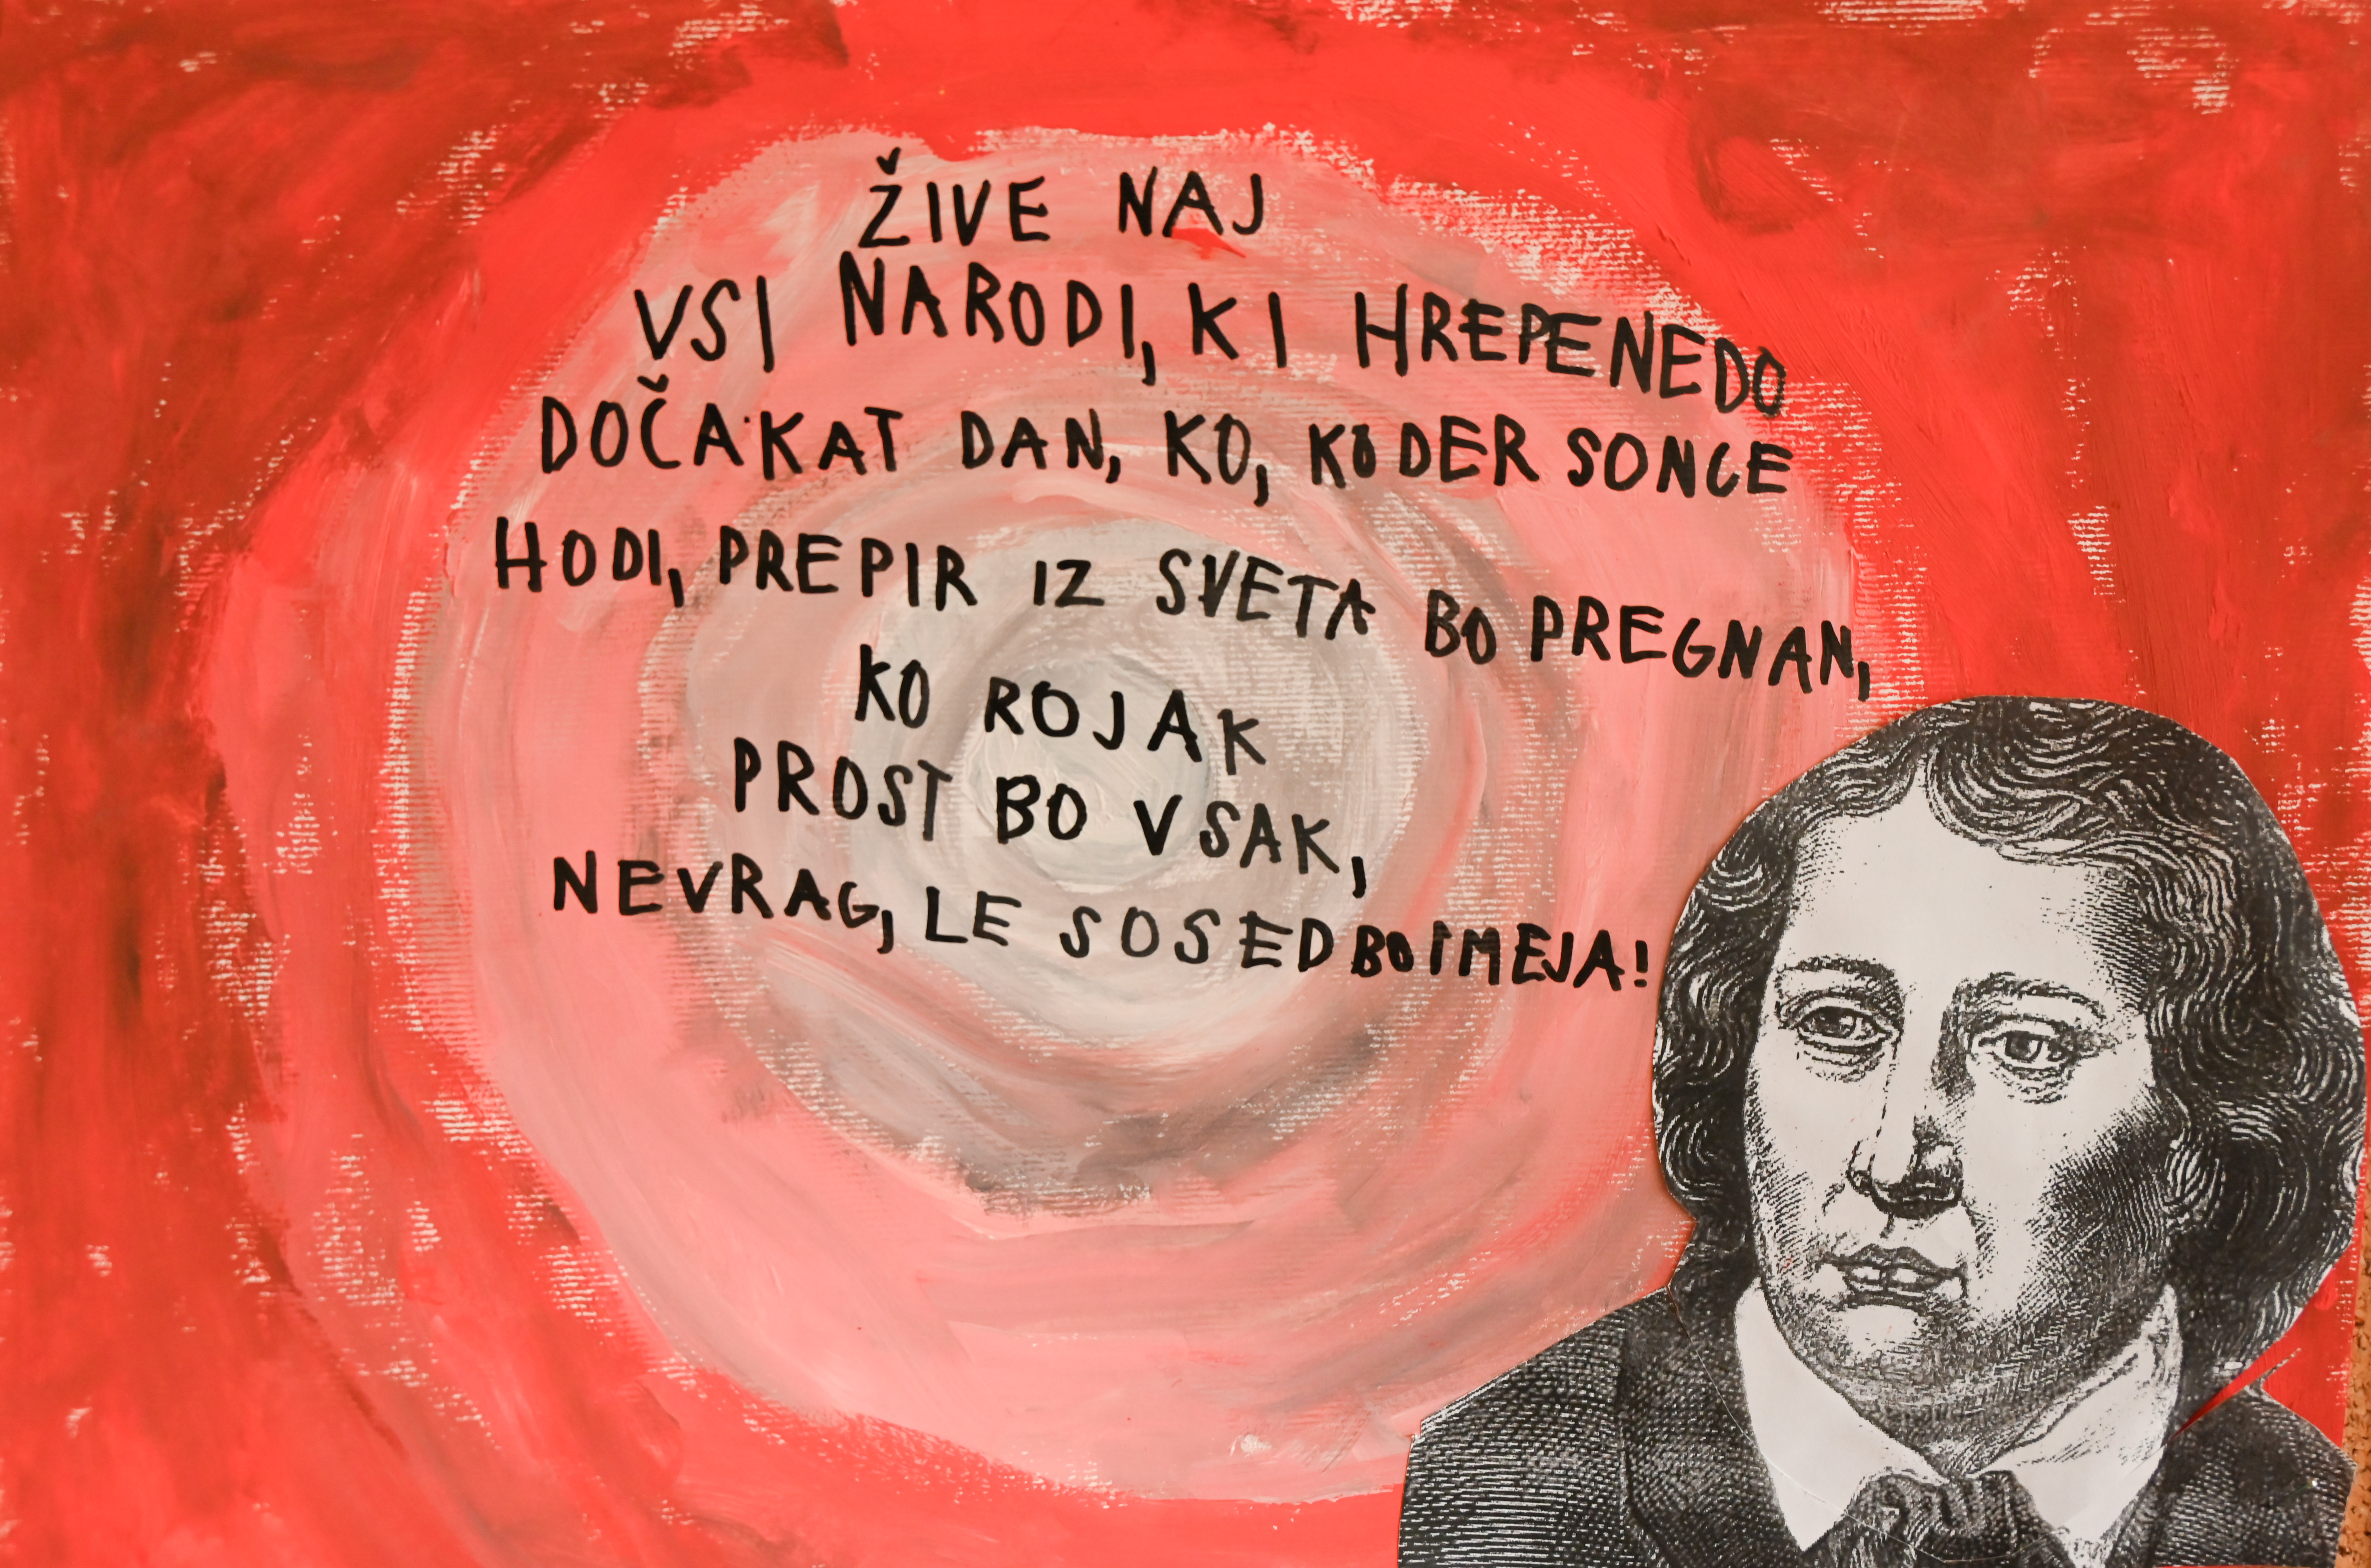 ŽIVE NAJ
VSI NARODI, KI HREPENEDO
DOČAKAT DAN, KO, KODER SONCE
HODI, PREPIR IZ SVETA BO PREGNAN,
KO ROJAK
PROST BO VSAK,
NE VRAG, LE SOSED BO IMEJA!